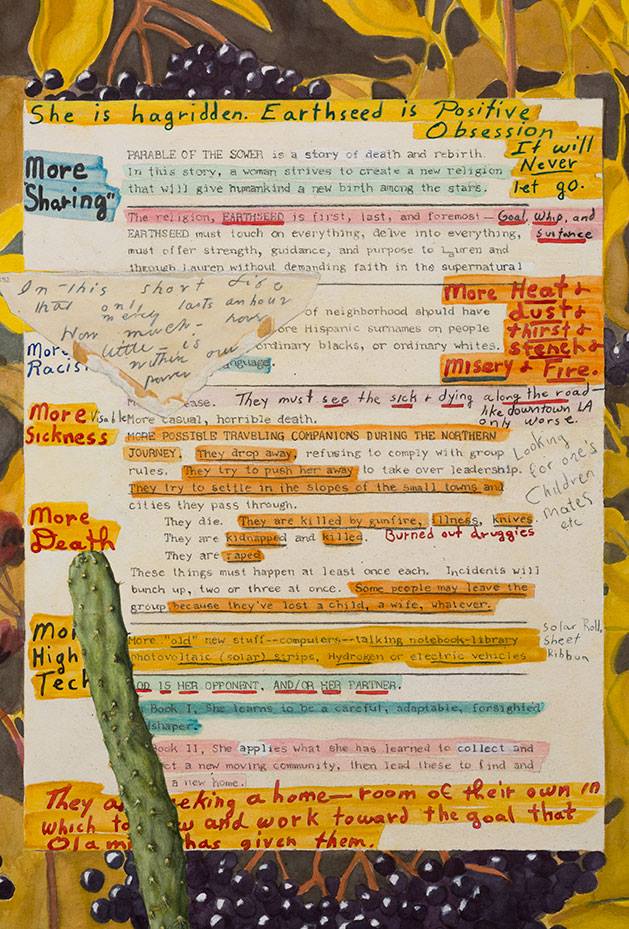 She is hagridden. Earthseed is Positive
Obsession
It will
Never
let go.
More
"Sharing"
PARABLE OF THE SOWER is a story of death and rebirth.
In this story, a woman strives to create a new religion
that will give humankind a new birth among the stars.
The religion, EARTHSEED is first, last, and foremost — Goal, Whip, and
EARTHSEED must touch on everything, delve into everything,
must offer strength, guidance, and purpose to Lauren and
through Lauren without demanding faith in the supernatural
In this short life
that only lasts an hour
merely
How much - how
little - is
within our
power
of neighborhood should have
ore Hispanic surnames on people
ordinary blacks, or ordinary whites.
nguage.
More Heat +
dust +
thirst +
stench +
Misery + Fire.
More
Racis
ease. They must see the sick + dying along the road—
like downtown LA
only worse.
More casual, horrible death.
More Visable
Sickness
MORE POSSIBLE TRAVELING COMPANIONS DURING THE NORTHERN
JOURNEY. They drop away, refusing to comply with group
rules. They try to push her away to take over leadership.
They try to settle in the slopes of the small towns and
cities they pass through.
Looking
for one's
Children
mates
etc
More
Death
They die. They are killed by gunfire, illness, knives.
They are kidnapped and killed. Burned out druggies
They are raped
These things must happen at least once each. Incidents will
bunch up, two or three at once. Some people may leave the
group because they've lost a child, a wife, whatever.
Mor
High
Tech
More "old" new stuff--computers--talking notebook-library
photovoltaic (solar) strips, Hydrogen or electric vehicles
Solar Roll,
Sheet
Ribbon
OD IS HER OPPONENT, AND/OR HER PARTNER.
Book I, She learns to be a careful, adaptable, forsighted
dshaper.
Book II, She applies what she has learned to collect and
ct a new moving community, then lead these to find and
a new home.
They a eeking a home—room of their own in
which to w and work toward the goal that
Olami has given them.